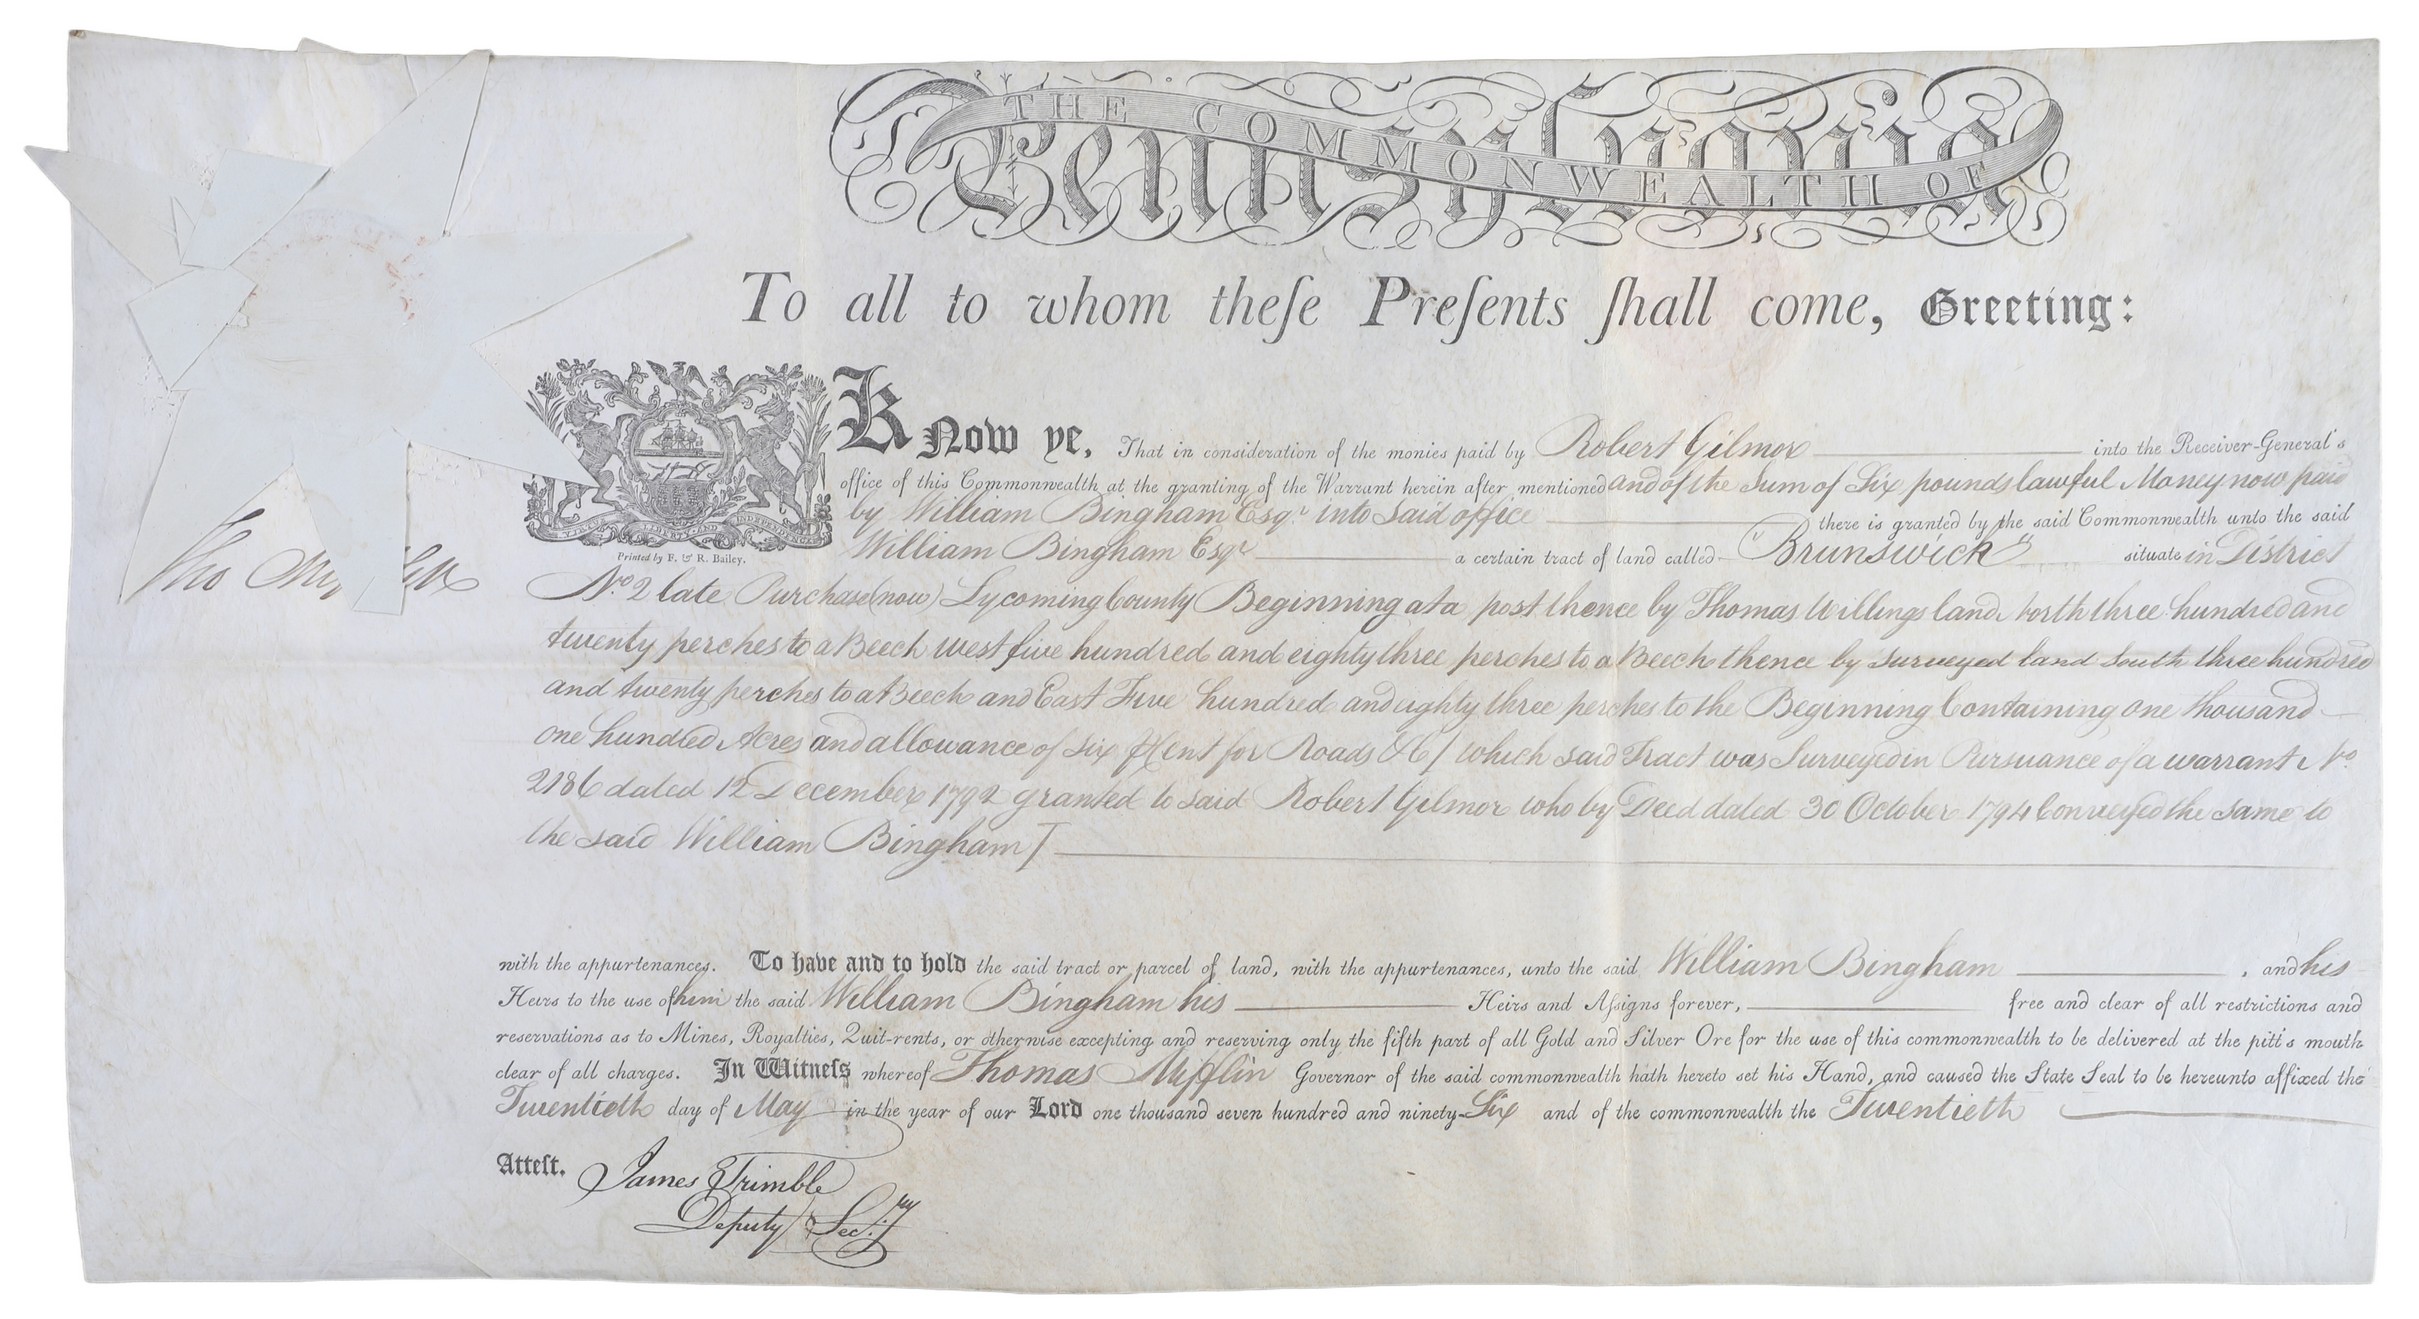 THE COMMONWEALTH OF
Pennsylvania
To all to whom theſe Preſents ſhall come, Greeting:
Know ye, That in consideration of the monies paid by Robert Gilmor into the Receiver-General's
office of this Commonwealth at the granting of the Warrant herein after mentioned and of the Sum of Six pounds lawful Money now paid
by William Bingham Esqr. into Said office there is granted by the said Commonwealth unto the said
William Bingham Esqr a certain tract of land called "Brunswick" situate in District
INDEPENDENCE
Printed by F. & R. Bailey.
Tho Mi
No. 2 late Purchase (now) Lycoming County Beginning at a post thence by Thomas Willings land North three hundred and
twenty perches to a Beech West five hundred and eighty three perches to a Beech thence by Surveyed land South three hundred
and twenty perches to a Beech and East Five hundred and eighty three perches to the Beginning Containing one thousand
one hundred Acres and allowance of Six p Cent for Roads &c / which said Tract was Surveyed in Pursuance of a warrant No.
2186 dated 12 December 1792 granted to said Robert Gilmor who by Deed dated 30 October 1794 Conveyed the same to
the said William Bingham /
with the appurtenances. To have and to hold the said tract or parcel of land, with the appurtenances, unto the said William Bingham , and his
Heirs to the use of him the said William Bingham his Heirs and Aſsigns forever, free and clear of all restrictions and
reservations as to Mines, Royalties, Quit-rents, or otherwise excepting and reserving only the fifth part of all Gold and Silver Ore for the use of this commonwealth to be delivered at the pitt's mouth
clear of all charges. In Witneſs whereof Thomas Mifflin Governor of the said commonwealth hath hereto set his Hand, and caused the State Seal to be hereunto affixed the
Twentieth day of May in the year of our Lord one thousand seven hundred and ninety-Six and of the commonwealth the Twentieth
Atteſt. James Trimble
Deputy Sec.ry